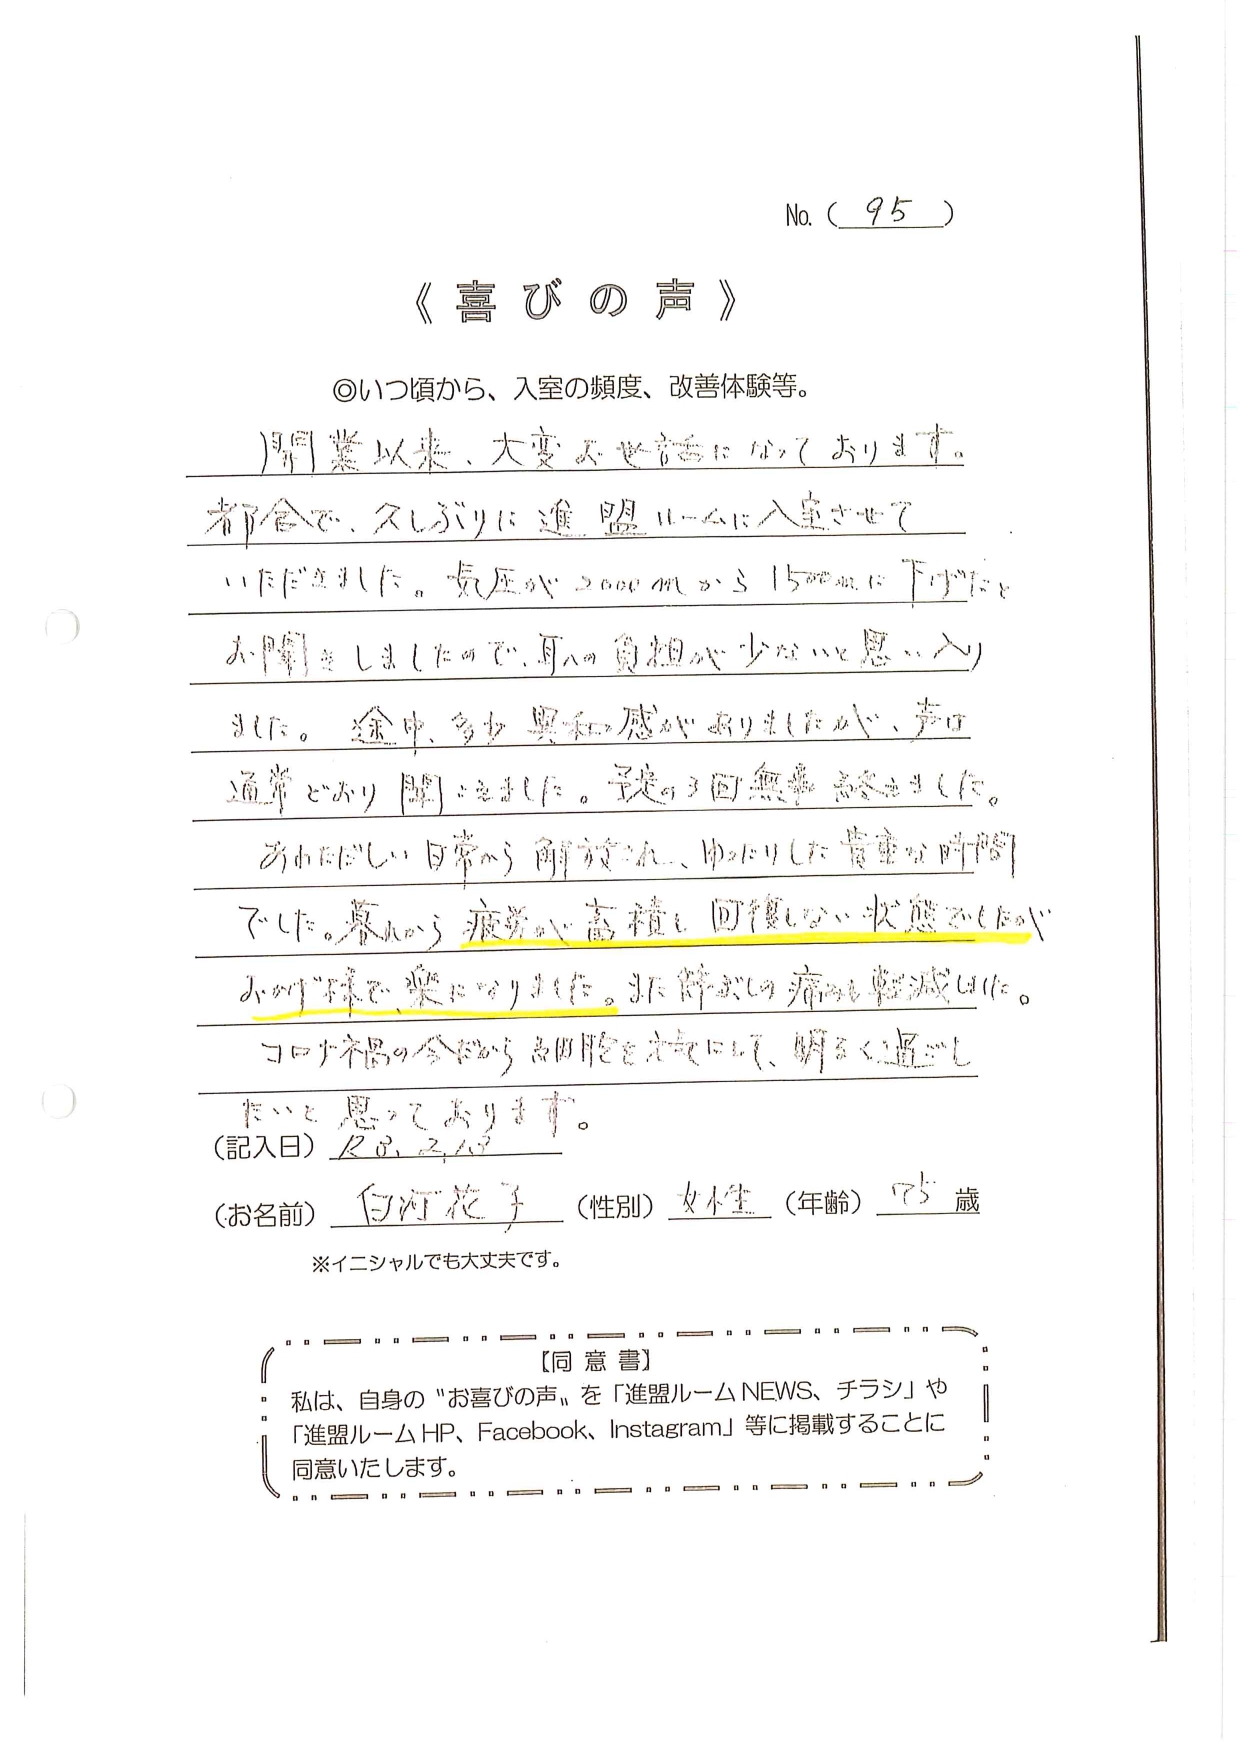 No.（ 95 ）
《 喜 び の 声 》
◎いつ頃から、入室の頻度、改善体験等。
開業以来、大変お世話になっております。
都合で、久しぶりに進盟ルームに入室させて
いただきました。気圧が2000mから1500mに下げたと
お聞きしましたので、耳への負担が少ないと思い入り
ました。途中、多少異和感がありましたが、声は
通常どおり聞こえました。予定の3回無事終えました。
あわただしい日常から解放され、ゆったりした貴重な時間
でした。暮れから疲労が蓄積し回復しない状態でしたが
おかげ様で、楽になりました。また膝こしの痛みも軽減しました。
コロナ禍の今だから 細胞を元気にして、明るく過ごし
たいと思っております。
（記入日） R3.2,13
（お名前） 白河花子 （性別） 女性 （年齢） 75 歳
※イニシャルでも大丈夫です。
【同 意 書】
私は、自身の〝お喜びの声〟を「進盟ルームNEWS、チラシ」や
「進盟ルームHP、Facebook、Instagram」等に掲載することに
同意いたします。